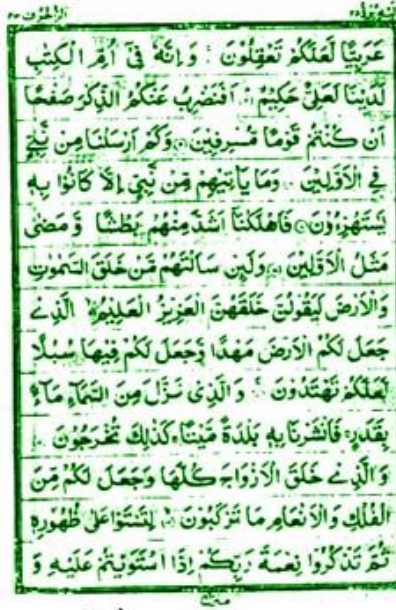 الزخرف ٤٣
اليه يرد ٢٥
عَرَبِيًّا لَّعَلَّكُمْ تَعْقِلُوْنَ ۚ وَاِنَّهٗ فِيْٓ اُمِّ الْكِتٰبِ
لَدَيْنَا لَعَلِيٌّ حَكِيْمٌ ؕ اَفَنَضْرِبُ عَنْكُمُ الذِّكْرَ صَفْحًا
اَنْ كُنْتُمْ قَوْمًا مُّسْرِفِيْنَ ۝ وَكَمْ اَرْسَلْنَا مِنْ نَّبِيٍّ
فِي الْاَوَّلِيْنَ ۝ وَمَا يَاْتِيْهِمْ مِّنْ نَّبِيٍّ اِلَّا كَانُوْا بِهٖ
يَسْتَهْزِءُوْنَ ۝ فَاَهْلَكْنَآ اَشَدَّ مِنْهُمْ بَطْشًا وَّمَضٰى
مَثَلُ الْاَوَّلِيْنَ ۝ وَلَئِنْ سَاَلْتَهُمْ مَّنْ خَلَقَ السَّمٰوٰتِ
وَالْاَرْضَ لَيَقُوْلُنَّ خَلَقَهُنَّ الْعَزِيْزُ الْعَلِيْمُ ۙ الَّذِيْ
جَعَلَ لَكُمُ الْاَرْضَ مَهْدًا وَّجَعَلَ لَكُمْ فِيْهَا سُبُلًا
لَّعَلَّكُمْ تَهْتَدُوْنَ ۚ وَالَّذِيْ نَزَّلَ مِنَ السَّمَآءِ مَآءً
بِقَدَرٍ ۚ فَاَنْشَرْنَا بِهٖ بَلْدَةً مَّيْتًا ۚ كَذٰلِكَ تُخْرَجُوْنَ ۝
وَالَّذِيْ خَلَقَ الْاَزْوَاجَ كُلَّهَا وَجَعَلَ لَكُمْ مِّنَ
الْفُلْكِ وَالْاَنْعَامِ مَا تَرْكَبُوْنَ ۙ لِتَسْتَوٗا عَلٰى ظُهُوْرِهٖ
ثُمَّ تَذْكُرُوْا نِعْمَةَ رَبِّكُمْ اِذَا اسْتَوَيْتُمْ عَلَيْهِ وَ